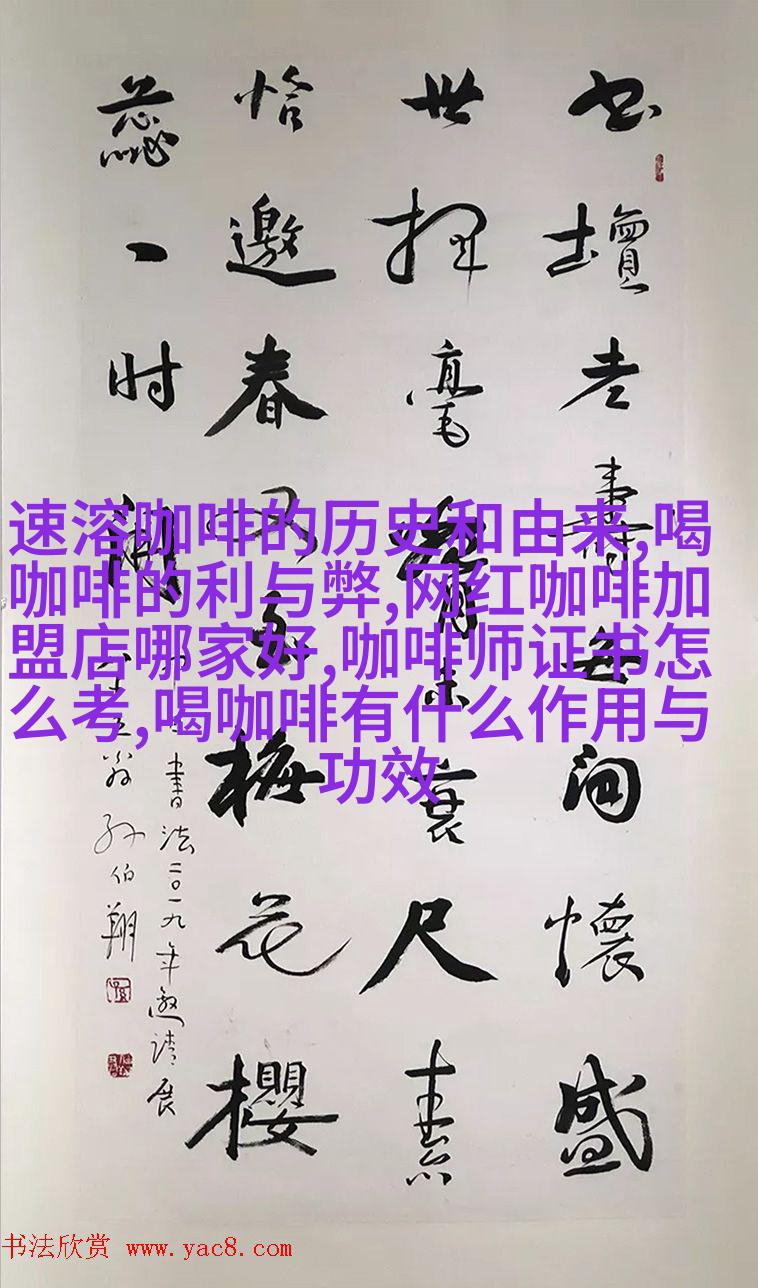 书壇老壽懷盛
世挥毫興未衰尺素
恰邀春风梅花櫻
蕊一时開
書法二〇一九年邀请展
翁孙伯翔
速溶咖啡的历史和由来,喝
咖啡的利与弊,网红咖啡加
盟店哪家好,咖啡师证书怎
么考,喝咖啡有什么作用与
功效
书法欣赏 www.yac8.com